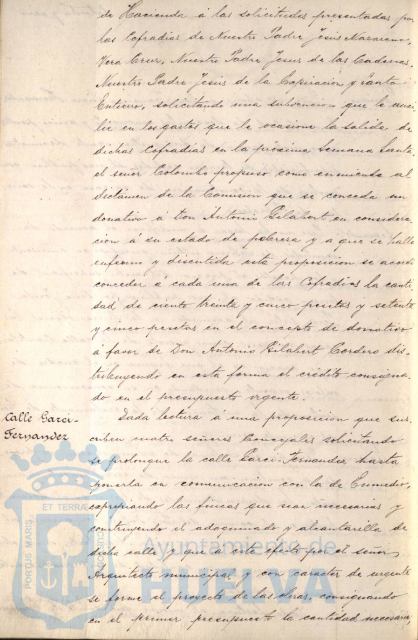 de Hacienda á las solicitudes presentadas por
las Cofradias de Nuestro Padre Jesus Nazareno,
Vera Cruz, Nuestro Padre Jesus de las Cadenas,
Nuestro Padre Jesus de la Espiración y Santo
Entierro, solicitando una subvencion que le auxi-
lie en los gastos que le ocasione la salida de
dichas Cofradias en la próxima Semana Santa,
el señor Colombo propuso como enmienda al
dictámen de la Comision que se conceda un
donativo á Don Antonio Gilabert en considera-
cion á su estado de pobreza y a que se halla
enfermo y discutida esta proposicion se acordó
conceder á cada una de las Cofradias la canti-
dad de ciento treinta y cinco pesetas y setenta
y cinco pesetas en el concepto de donativo
á favor de Don Antonio Gilabert Cordero dis-
tribuyendo en esta forma el crédito consigna-
do en el presupuesto vigente.
Calle Garci-
Fernandez
Dada lectura á una proposicion que sus-
criben cuatro señores Concejales solicitando
se prolongue la calle Garci-Fernandez hasta
ponerla en comunicacion con la de Enmedio,
expropiando las fincas que sean necesarias y
construyendo el adoquinado y alcantarilla de
dicha calle y que á este efecto por el señor
Arquitecto municipal y con caracter de urgente
se forme el proyecto de las obras, consignando
en el primer presupuesto la cantidad necesaria
PORTUS MARIS
ET TERRAE
Ayuntamiento de
HUELVA